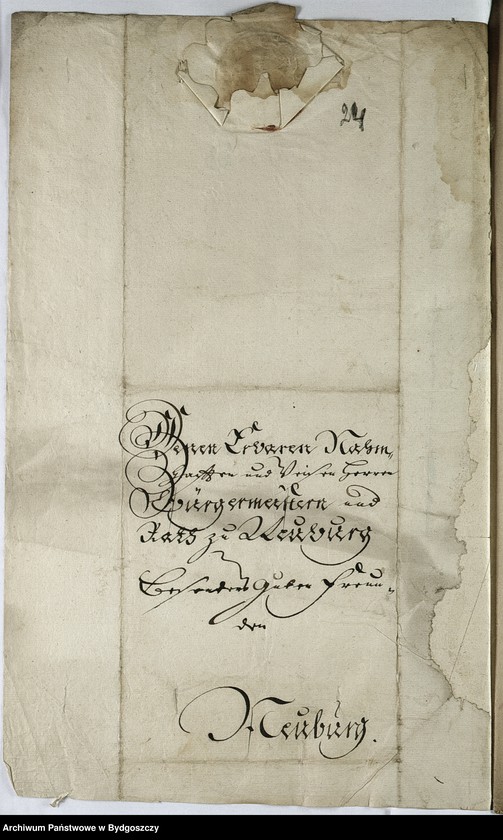 24
Denen Ervaren Nahm-
hafften und Weisen Herren
Bürgermeistern und
Rath zu Neuburg
Besonders Guten Freun-
den
Neuburg.
Archiwum Państwowe w Bydgoszczy